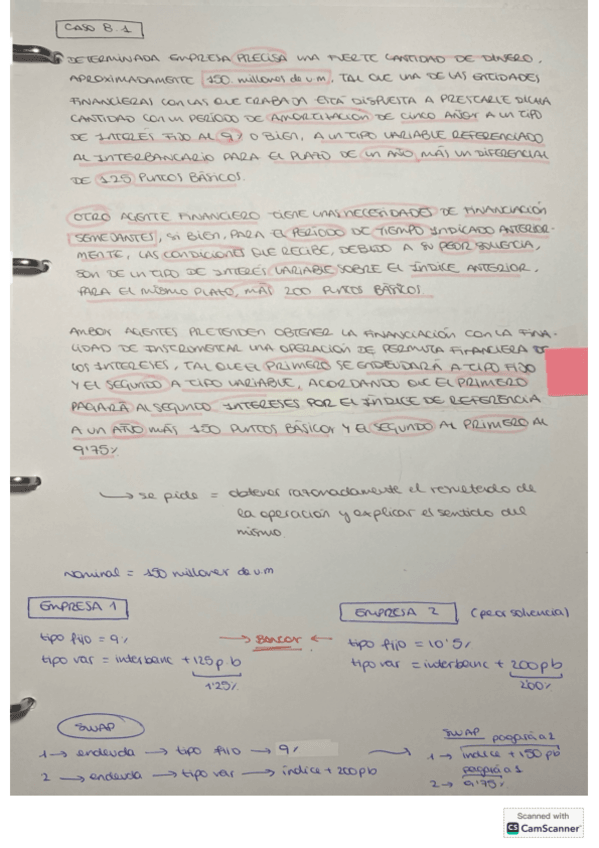 CASO B.1
DETERMINADA EMPRESA PRECISA UNA FUERTE CANTIDAD DE DINERO,
APROXIMADAMENTE 150 millones de u.m, TAL QUE UNA DE LAS ENTIDADES
FINANCIERAS CON LAS QUE TRABAJA ESTÁ DISPUESTA A PRESTARLE DICHA
CANTIDAD CON UN PERÍODO DE AMORTIZACIÓN DE CINCO AÑOS A UN TIPO
DE INTERÉS FIJO AL 9% O BIEN, A UN TIPO VARIABLE REFERENCIADO
AL INTERBANCARIO PARA EL PLAZO DE UN AÑO, MÁS UN DIFERENCIAL
DE 125 PUNTOS BÁSICOS.
OTRO AGENTE FINANCIERO TIENE UNAS NECESIDADES DE FINANCIACIÓN
SEMEJANTES, SI BIEN, PARA EL PERÍODO DE TIEMPO INDICADO ANTERIOR-
MENTE, LAS CONDICIONES QUE RECIBE, DEBIDO A SU PEOR SOLVENCIA,
SON DE UN TIPO DE INTERÉS VARIABLE SOBRE EL ÍNDICE ANTERIOR,
PARA EL MISMO PLAZO, MÁS 200 PUNTOS BÁSICOS.
AMBOS AGENTES PRETENDEN OBTENER LA FINANCIACIÓN CON LA FINA-
LIDAD DE INSTRUMENTAR UNA OPERACIÓN DE PERMUTA FINANCIERA DE
LOS INTERESES, TAL QUE EL PRIMERO SE ENDEUDARÁ A TIPO FIJO
Y EL SEGUNDO A TIPO VARIABLE, ACORDANDO QUE EL PRIMERO
PAGARÁ AL SEGUNDO INTERESES POR EL ÍNDICE DE REFERENCIA
A UN AÑO MÁS 150 PUNTOS BÁSICOS Y EL SEGUNDO AL PRIMERO AL
9'75%
→ se pide = obtener razonadamente el resultado de
la operación y explicar el sentido del
mismo.
Nominal = 150 millones de u.m
EMPRESA 1
EMPRESA 2 (peor solvencia)
tipo fijo = 9% → Bancos ← tipo fijo = 10'5%
tipo var = interbanc + 125 p.b tipo var = interbanc + 200 pb
1'25% 200%
SWAP
SWAP pagaría a 2
1 → endeuda → tipo fijo → 9% → 1 → índice + 150 pb
pagaría a 1
2 → endeuda → tipo var → índice + 200 pb 2 → 9'75%
Scanned with
CS CamScanner